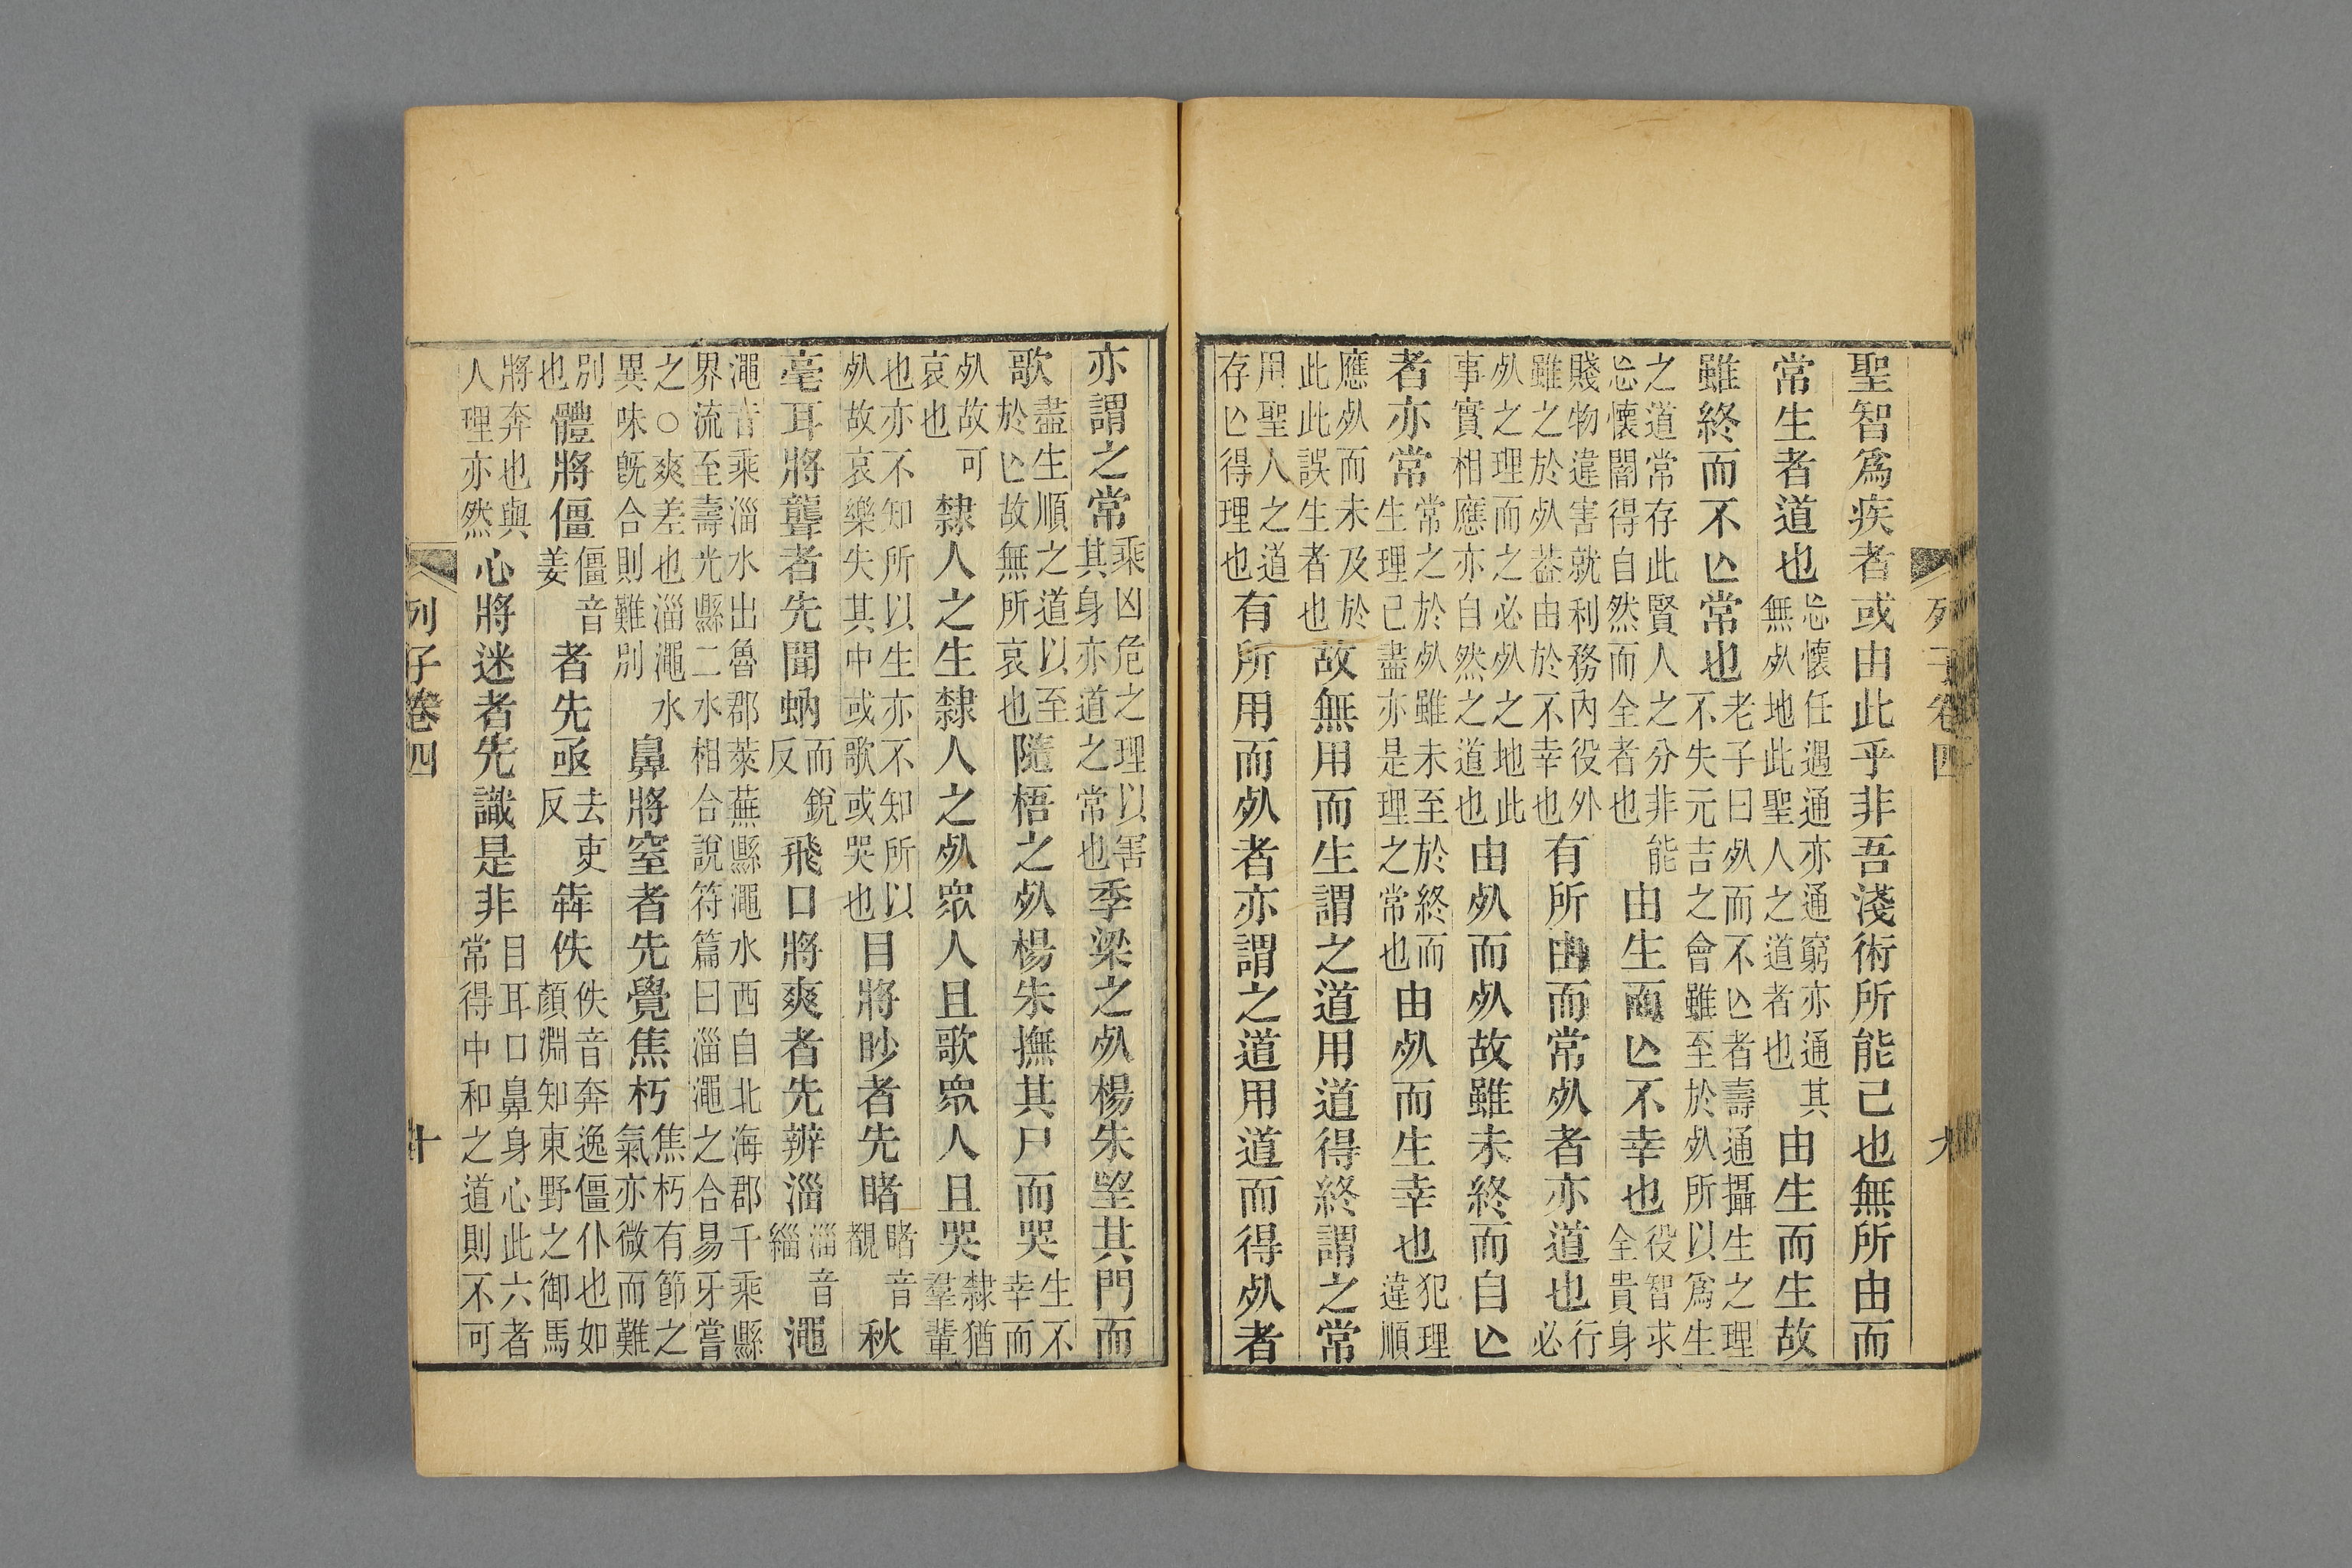 聖智爲疾者或由此乎非吾淺術所能己也無所由而
常生者道也忘懷任遇通亦通窮亦通其無㱙地此聖人之道者也由生而生故
雖終而不亾常也老子曰㱙而不亾者壽通攝生之理不失元吉之會雖至於㱙所以爲生
之道常存此賢人之分非能忘懷闇得自然而全者也由生而亾不幸也役智求全貴身
賤物違害就利務內役外雖之於㱙葢由於不幸也有所由而常㱙者亦道也行必
㱙之理而之必㱙之地此事實相應亦自然之道也由㱙而㱙故雖未終而自亾
者亦常常之於㱙雖未至於終而生理已盡亦是理之常也由㱙而生幸也犯理違順
應㱙而未及於此此誤生者也故無用而生謂之道用道得終謂之常
用聖人之道存亾得理也有所用而㱙者亦謂之道用道而得㱙者
列子卷四
九
亦謂之常乘凶危之理以害其身亦道之常也季梁之㱙楊朱望其門而
歌盡生順之道以至於亾故無所哀也隨梧之㱙楊朱撫其尸而哭生不幸而
㱙故可哀也隸人之生隸人之㱙眾人且歌眾人且哭隸猶羣輩
也亦不知所以生亦不知所以㱙故哀樂失其中或歌或哭也目將眇者先睹睹音覩秋
毫耳將聾者先聞蚋而銳反飛口將爽者先辨淄淄音緇澠
澠音乘淄水出魯郡萊蕪縣澠水西自北海郡千乘縣界流至壽光縣二水相合說符篇曰淄澠之合易牙嘗
之○爽差也淄澠水異味既合則難別鼻將窒者先覺焦朽焦朽有節之氣亦微而難
別也體將僵僵音姜者先亟去吏反犇佚佚音奔逸僵仆也如顏淵知東野之御馬
將奔也與人理亦然心將迷者先識是非目耳口鼻身心此六者常得中和之道則不可
列子卷四
十